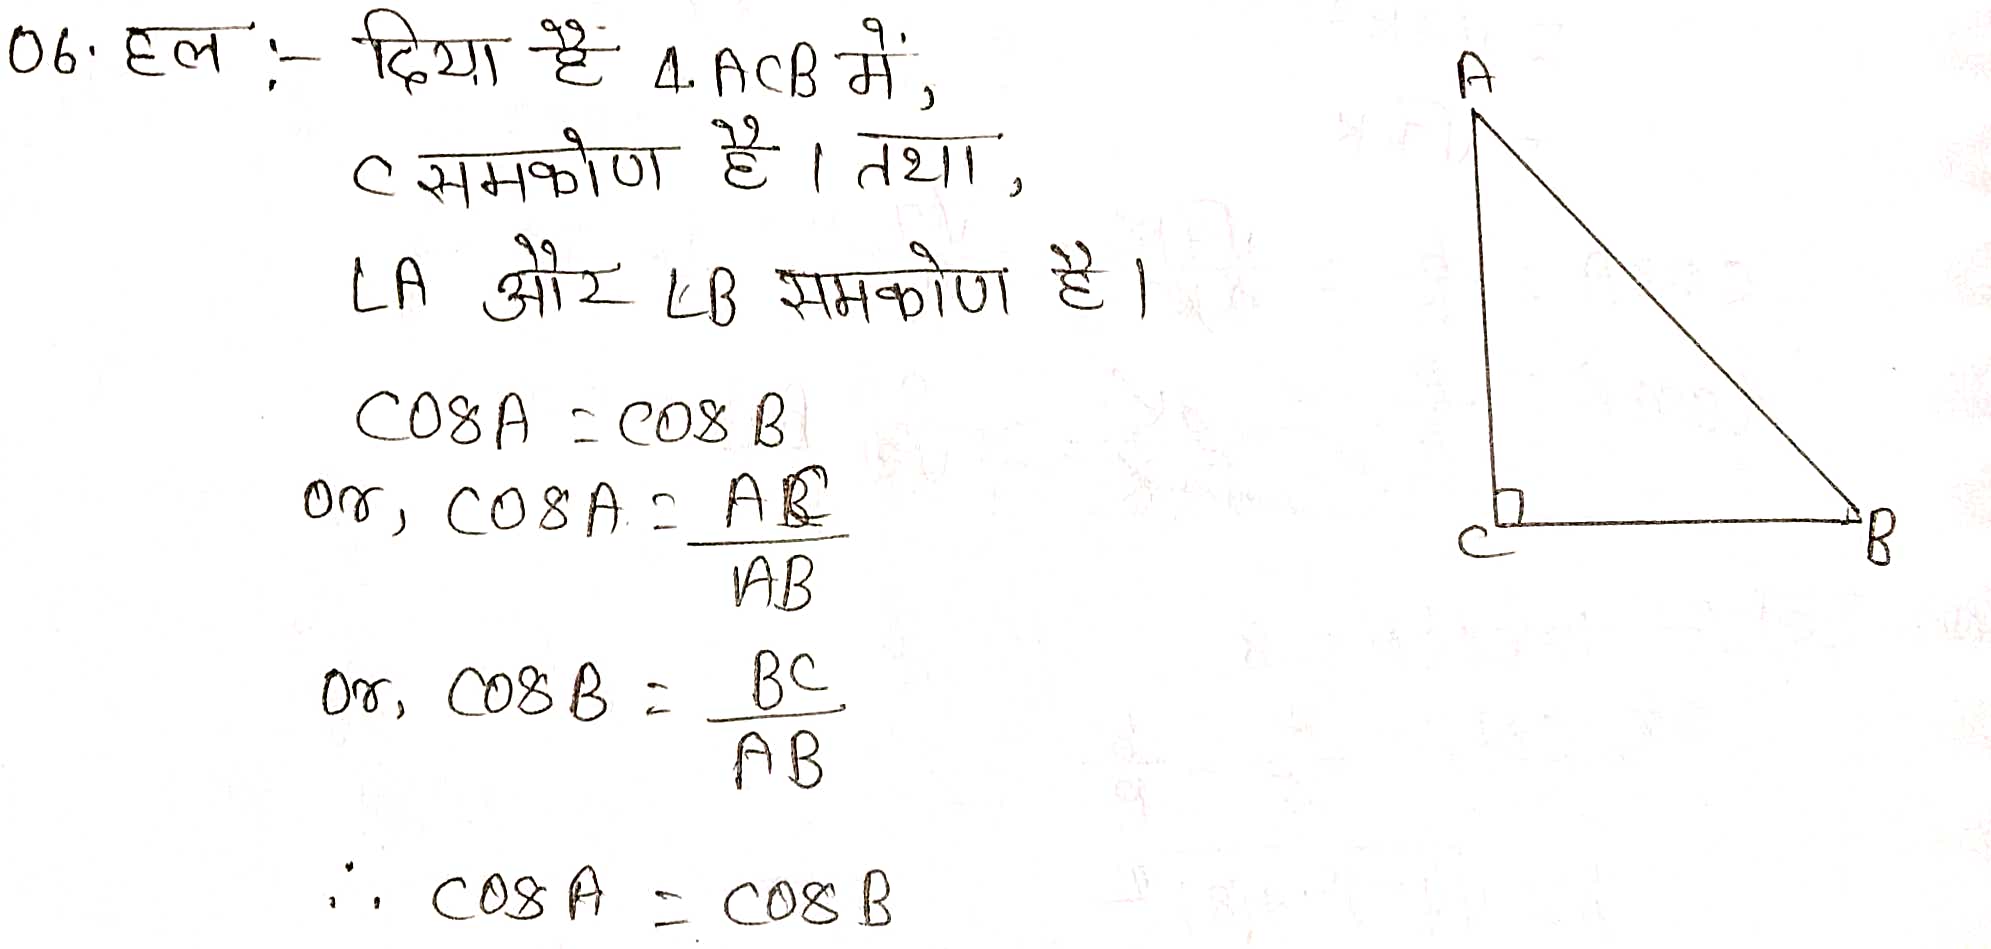 06. हल :- दिया है Δ ACB में,
C समकोण है । तथा,
∠A और ∠B समकोण है ।
cosA = cosB
or, cosA = AC
AB
or, cosB = BC
AB
∴ cosA = cosB
A
C
B